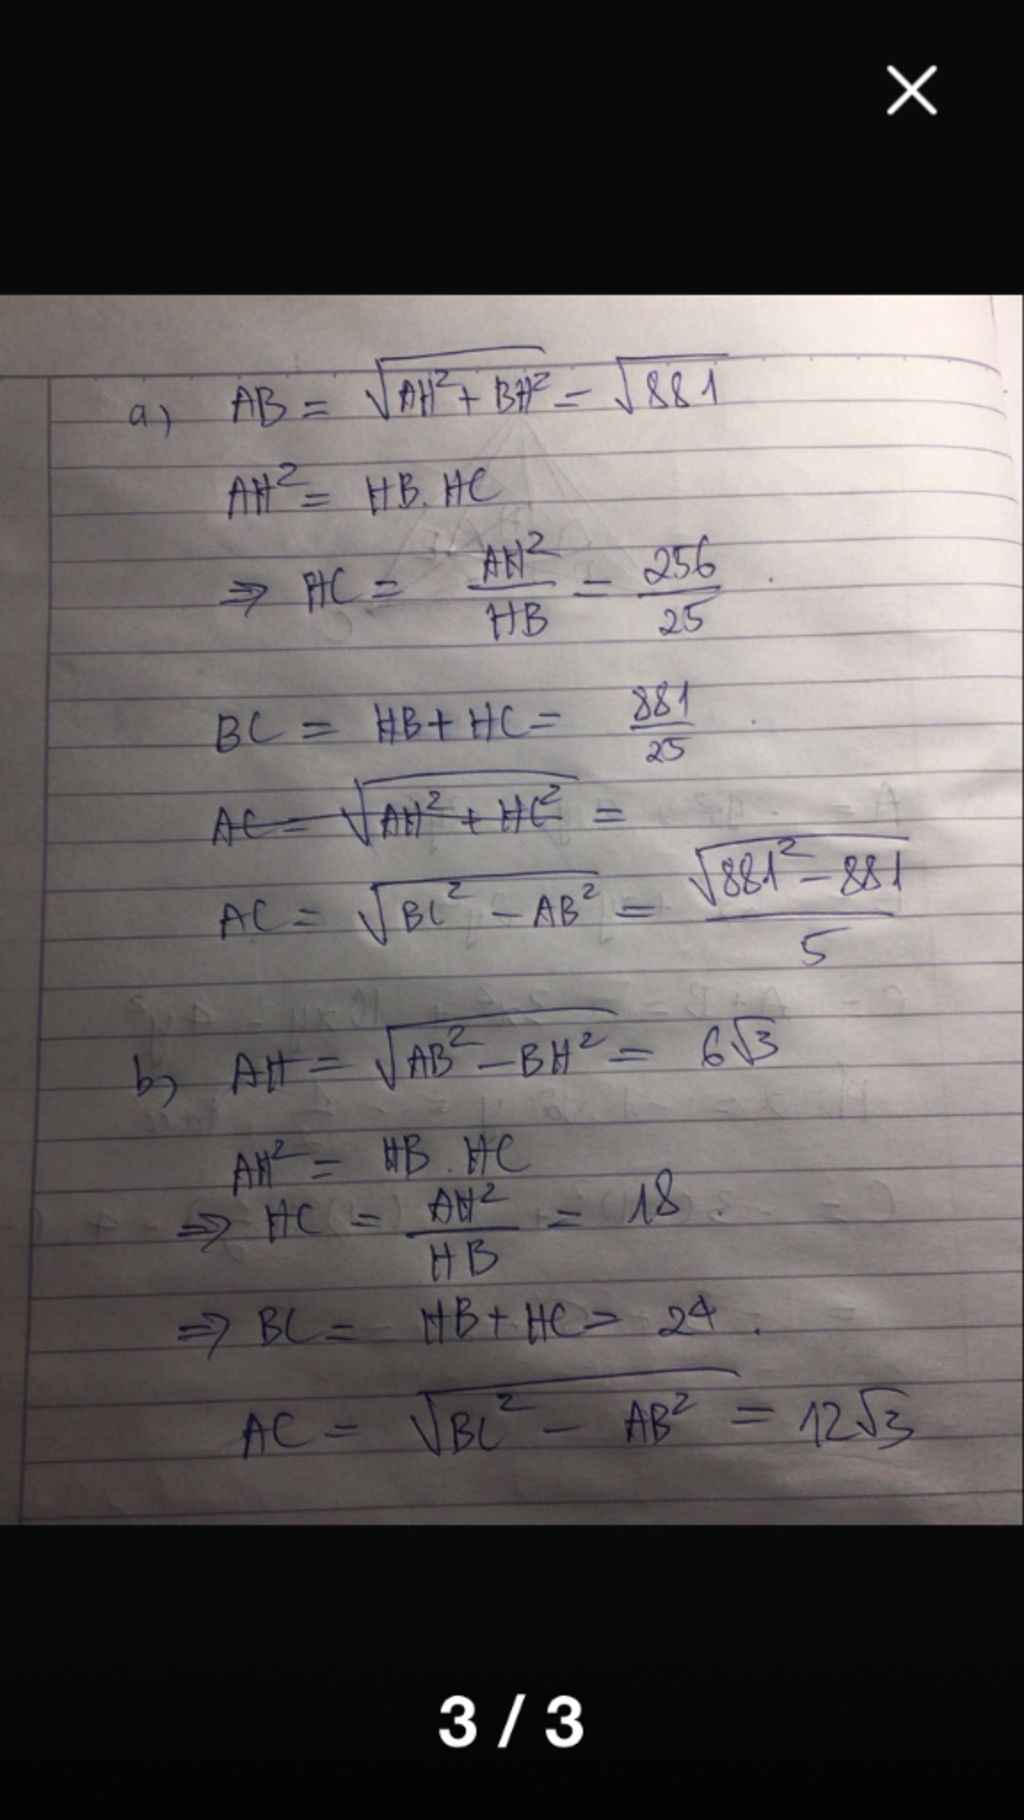 a) AB = √(AH² + BH²) = √881
AH² = HB. HC
⇒ HC = AH²/HB = 256/25 .
BC = HB + HC = 881/25 .
AC = √(AH² + HC²) =
AC = √(BC² - AB²) = √(881² - 881)/5
b) AH = √(AB² - BH²) = 6√3
AH² = HB . HC
⇒ HC = AH²/HB = 18
⇒ BC = HB + HC = 24 .
AC = √(BC² - AB²) = 12√3
3 / 3